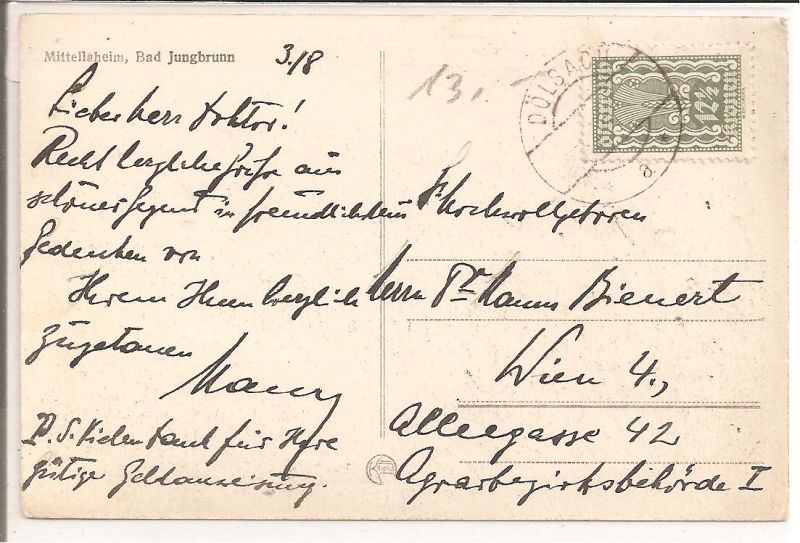 Mittellaheim, Bad Jungbrunn
3./8
Lieber Herr Doktor!
Recht herzliche Grüße aus
schöner Gegend in freundlichstem
Gedenken von
Ihrem Ihnen herzlich
zugetanen
P.S. Vielen Dank für Ihre
gütige Geldanweisung.
13.
DÖLSACH
a
12½
Hochwohlgeboren
Herrn Dr Hanns Bienert
Wien 4.,
Alleegasse 42
Agrarbezirksbehörde I